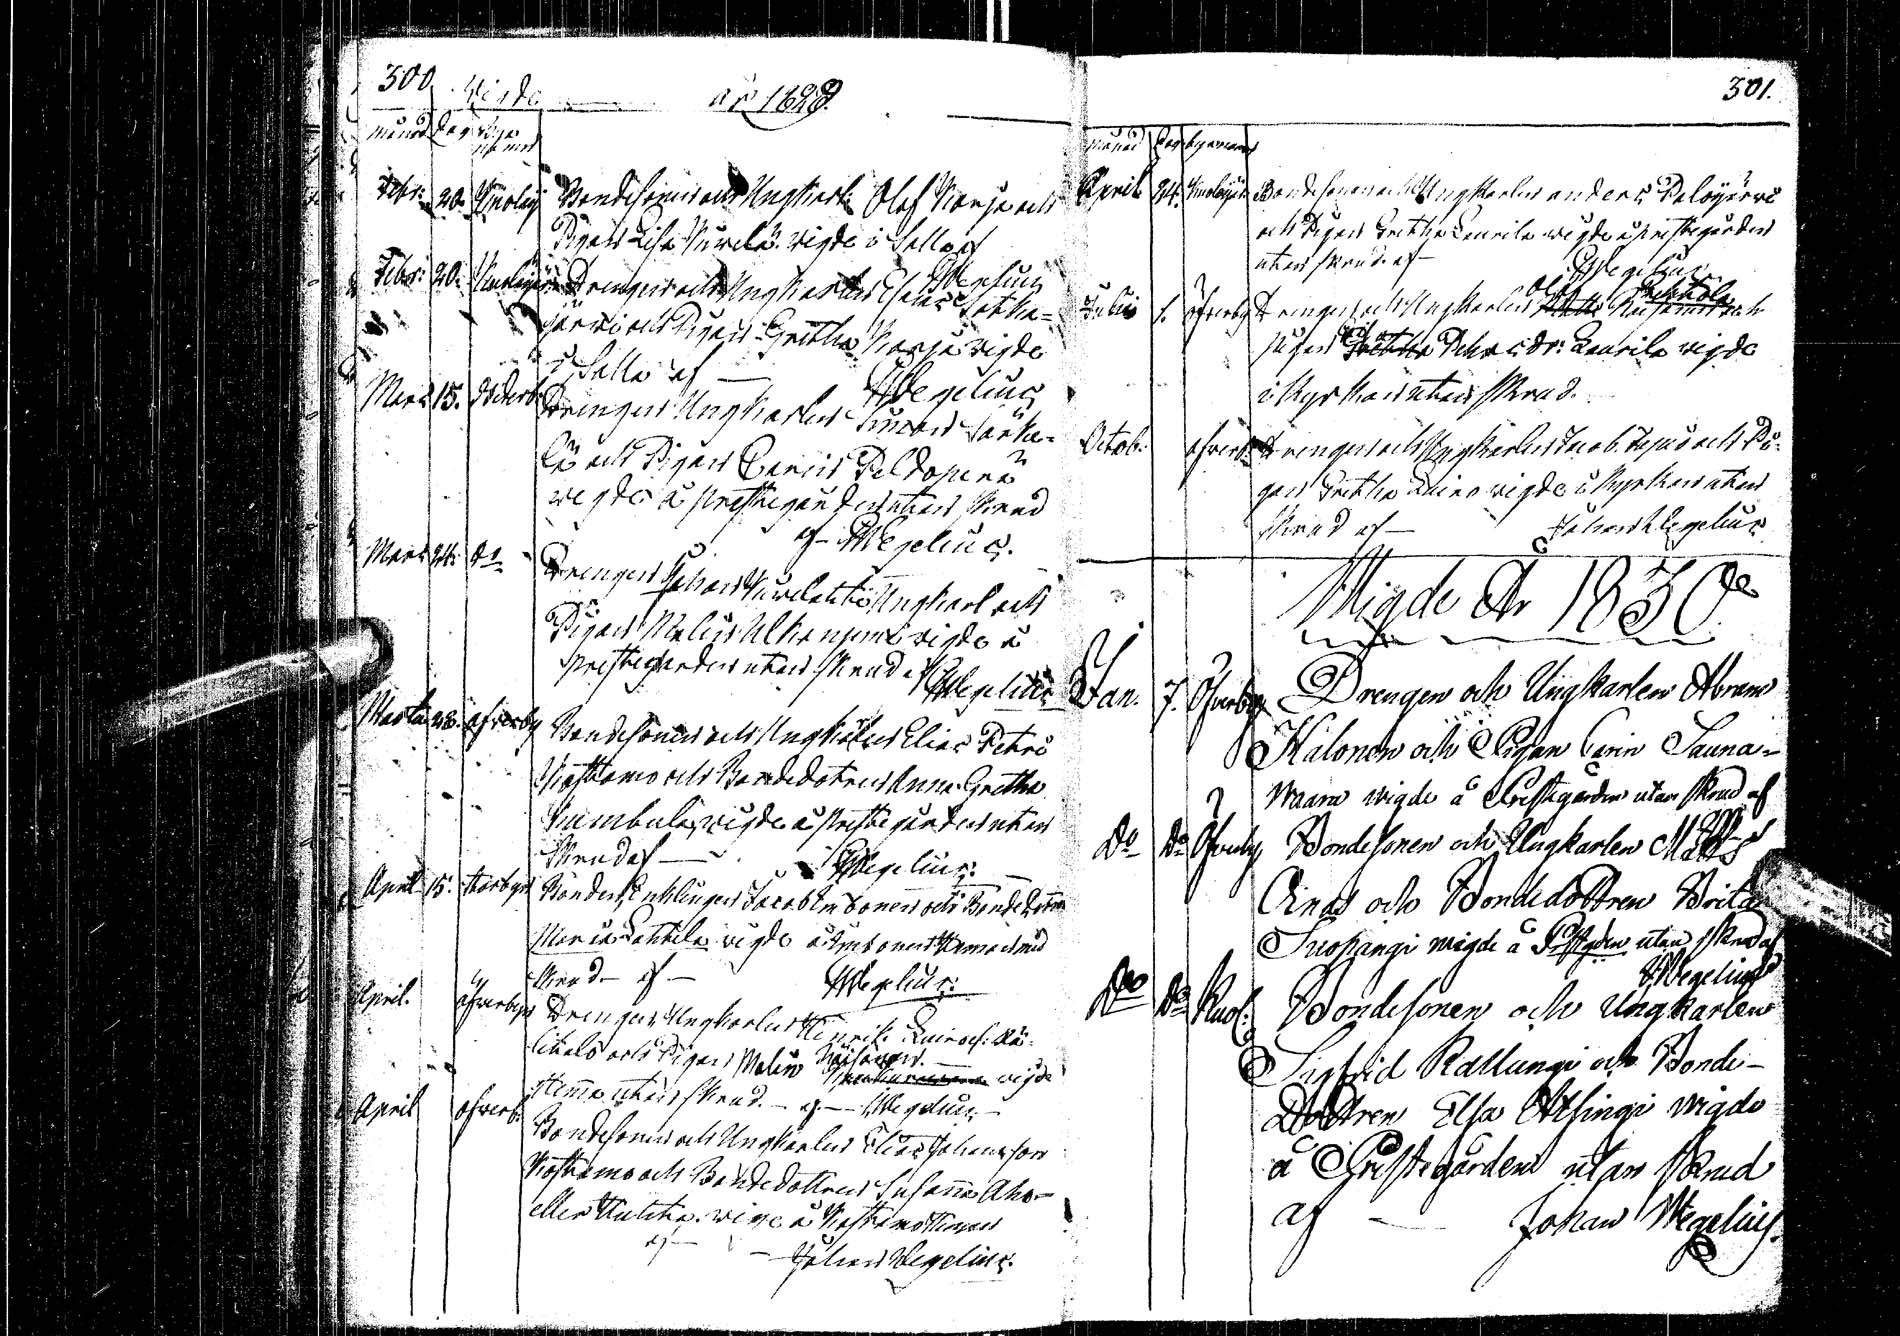 300 Vigde år 1829.
månad Dag Byn namn
Febr: 20. Kuolaj Bondesonen och Ungkarl: Olof Karja och
Pigan Lisa Kurela. vigde i Salla af
Wegelius
Febr: 20: Kuolajärvi Drengen och Ungkarlen Esaias Sotka=
järvi och Pigan Gretha Karja vigde
i Salla af — Wegelius
Mars 15. Drengen Ungkarlen Simon Särke=
lä och Pigan Carin Peldoperä
vigde å prestegården utan skrud
af Wegelius.
Mars 24. do Drengen Johan Kurelahti Ungkarl och
Pigan Malin Alkonjemi vigde å
prestegården utan skrud af Wegelius
Marti 28. öfverby Bondesonen och Ungkarlen Elias Petri
Kostamo och Bondedotren Anna Gretha
Kumbula, vigde å prestegården utan
skrud af — Wegelius.
April 15. Bonden Enklingen Jacob Imbonen och Bondedottren
Maria Lattila vigde å Imbonens Hemma med
skrud — af — Wegelius.
April. öfverbyn Drengen Ungkarlen Henrik
och Pigan Malin Käisänen vigde
Hemma utan skrud. — af — Wegelius —
April öfverb: Bondesonen och Ungkarlen Elias Johansson
Kostamo och Bondedottren Susanna Aho—
eller Kutika. vigde å Kostamo Hemman
af — — Johan Wegelius.
301.
månad Dag bynamn
April 24. Kuolajär: Bondesonen och Ungkarlen anders Pelojärvi
och Pigan Gretha Laurila vigde å prestegården
utan skrud. af — Wegelius
Julii 1. öfverby Drengen och Ungkarlen och
pigan Gretha Pehrsdr: Laurila vigde
i Kyrkan utan skrud.
Octob: öfverb: Drengen och Ungkarlen Jacob och Pi:
gan Gretha vigde i Kyrkan utan
skrud af — Johan Wegelius
Wigde År 1830
Jan. 7. Öfverby Drengen och Ungkarlen Abram
Halonen och Pigan Carin Sauna=
waara wigde å Prestegården utan skrud af
Do Do Öfverby Bondesonen och Ungkarlen Matts
Ainas och Bondedottren Brita
Suopangi wigde å Prstgden utan skrud af
Wegelius
Do Do Kuol: Bondesonen och Ungkarlen
Sigfrid Kallungi och Bonde—
Dottren Elsa Alsingi wigde
å Prestegården utan skrud
af — Johan Wegelius.